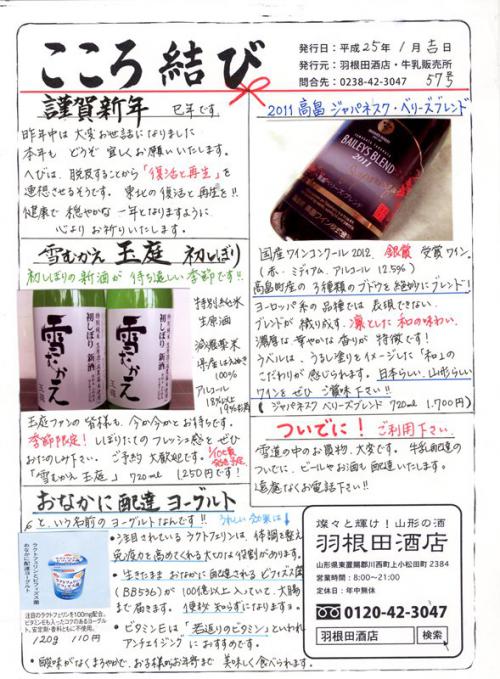 こころ結び
発行日:平成25年1月吉日
発行元:羽根田酒店・牛乳販売所
問合先:0238-42-3047 57号
謹賀新年 巳年です。
昨年中は大変お世話になりました
本年も どうぞ宜しくお願いいたします。
へびは、脱皮することから「復活と再生」を
連想させるそうです。東北の復活と再生を!!
健康で穏やかな一年となりますように、
心よりお祈りいたします。
雪むかえ 玉庭 初しぼり
初しぼりの新酒が待ち遠しい季節です!!
特別純米 初しぼり 新酒
雪むかえ
玉庭
特別純米 初しぼり 新酒
雪むかえ
特別純米
生原酒
減農薬米
県産はえぬき
100%
アルコール
18%以上
19%未満
玉庭ファンの皆様も、今か今かとお待ちです。
季節限定! しぼりたてのフレッシュ感をぜひ
おたのしみ下さい。ご予約大歓迎です。
「雪むかえ 玉庭」 720ml 1250円です!
おなかに配達ヨーグルト
と、いう名前のヨーグルトなんです!! うれしい効果は↓
ラクトフェリンとビフィズス菌
おなかに配達ヨーグルト
注目のラクトフェリンを100mg配合。
ビタミンEも入ったコクのあるヨーグル
ト。安定剤・香料ともに不使用。
120g 110円
・注目されているラクトフェリンは、体調を整え
免疫力を高めてくれる大切な役割があります。
・生きたまま おなかに配達されるビフィズス菌
(BB536)が100億以上入っていて、大腸
まで届きます。便秘知らずになりますョ。
・ビタミンEは「若返りのビタミン」といわれ
アンチエイジングにおすすめです。
・酸味がなくまろやかで、お子様からお年寄まで 美味しく食べられます。
2011 高畠ジャパネスク・ベリーズブレンド
BAILEYS BLEND
2011
国産ワインコンクール2012、銀賞 受賞ワイン。
(赤・ミディアム、アルコール 12.5%)
高畠町産の3種類のブドウを絶妙にブレンド!
ヨーロッパ系の品種では表現できない、
ブレンドが織り成す、凛とした和の味わい。
濃厚な華やかな香りが特徴です!
ラベルは、うるし塗りをイメージした「和」の
こだわりが感じられます。日本らしい、山形らしい
ワインをぜひ ご賞味下さい!!
(ジャパネスク ベリーズブレンド 720ml 1,700円)
ついでに! ご利用下さい
雪道の中のお買物、大変です。牛乳配達の
ついでに、ビールやお酒も配達いたします。
ご遠慮なくお電話下さい!!
燦々と輝け!山形の酒
羽根田酒店
山形県東置賜郡川西町上小松田町2384
営業時間:8:00〜21:00
定休日:年中無休
0120-42-3047
羽根田酒店 検索